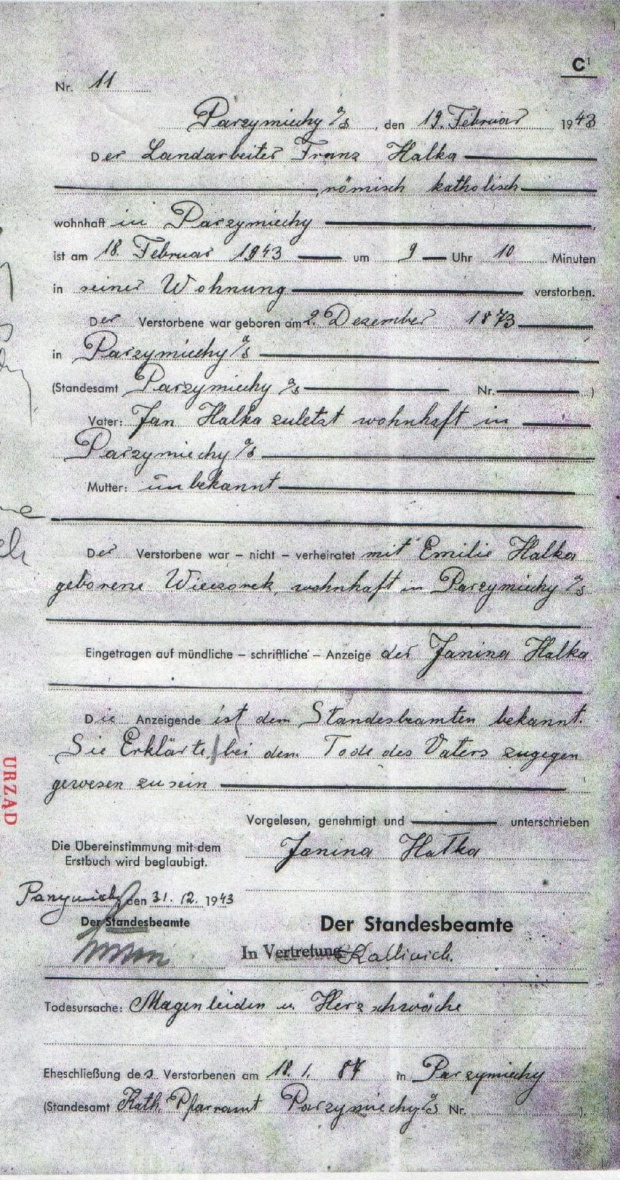 C1
Nr. 11
Parzymiechy O/S, den 19. Februar 1943
Der Landarbeiter Franz Halka
römisch katholisch
wohnhaft in Parzymiechy
ist am 18. Februar 1943 um 9 Uhr 10 Minuten
in seiner Wohnung verstorben.
Der Verstorbene war geboren am 2. Dezember 1873
in Parzymiechy O/S
(Standesamt Parzymiechy O/S Nr. )
Vater: Jan Halka zuletzt wohnhaft in
Parzymiechy O/S
Mutter: unbekannt
Der Verstorbene war – nicht – verheiratet mit Emilie Halka
geborene Wieczorek, wohnhaft in Parzymiechy O/S
Eingetragen auf mündliche – schriftliche – Anzeige der Janina Halka
Die Anzeigende ist dem Standesbeamten bekannt.
Sie Erklärte, bei dem Tode des Vaters zugegen
gewesen zu sein
Vorgelesen, genehmigt und unterschrieben
Janina Halka
Die Übereinstimmung mit dem
Erstbuch wird beglaubigt.
den 31. 12. 1943
Der Standesbeamte
Der Standesbeamte
In Vertretung
Todesursache: Magenleiden u Herzschwäche
Eheschließung des Verstorbenen am 18. 1. in Parzymiechy
(Standesamt Kath. Pfarramt Parzymiechy O/S Nr. ).
URZĄD